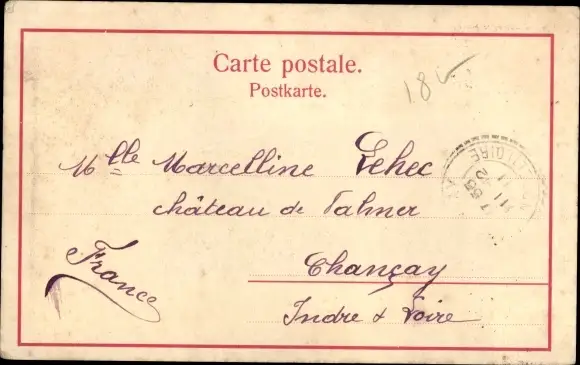 Carte postale.
Postkarte.
18
Mlle Marcelline Lehec
château de Valmer
Chançay
Indre & Loire
France